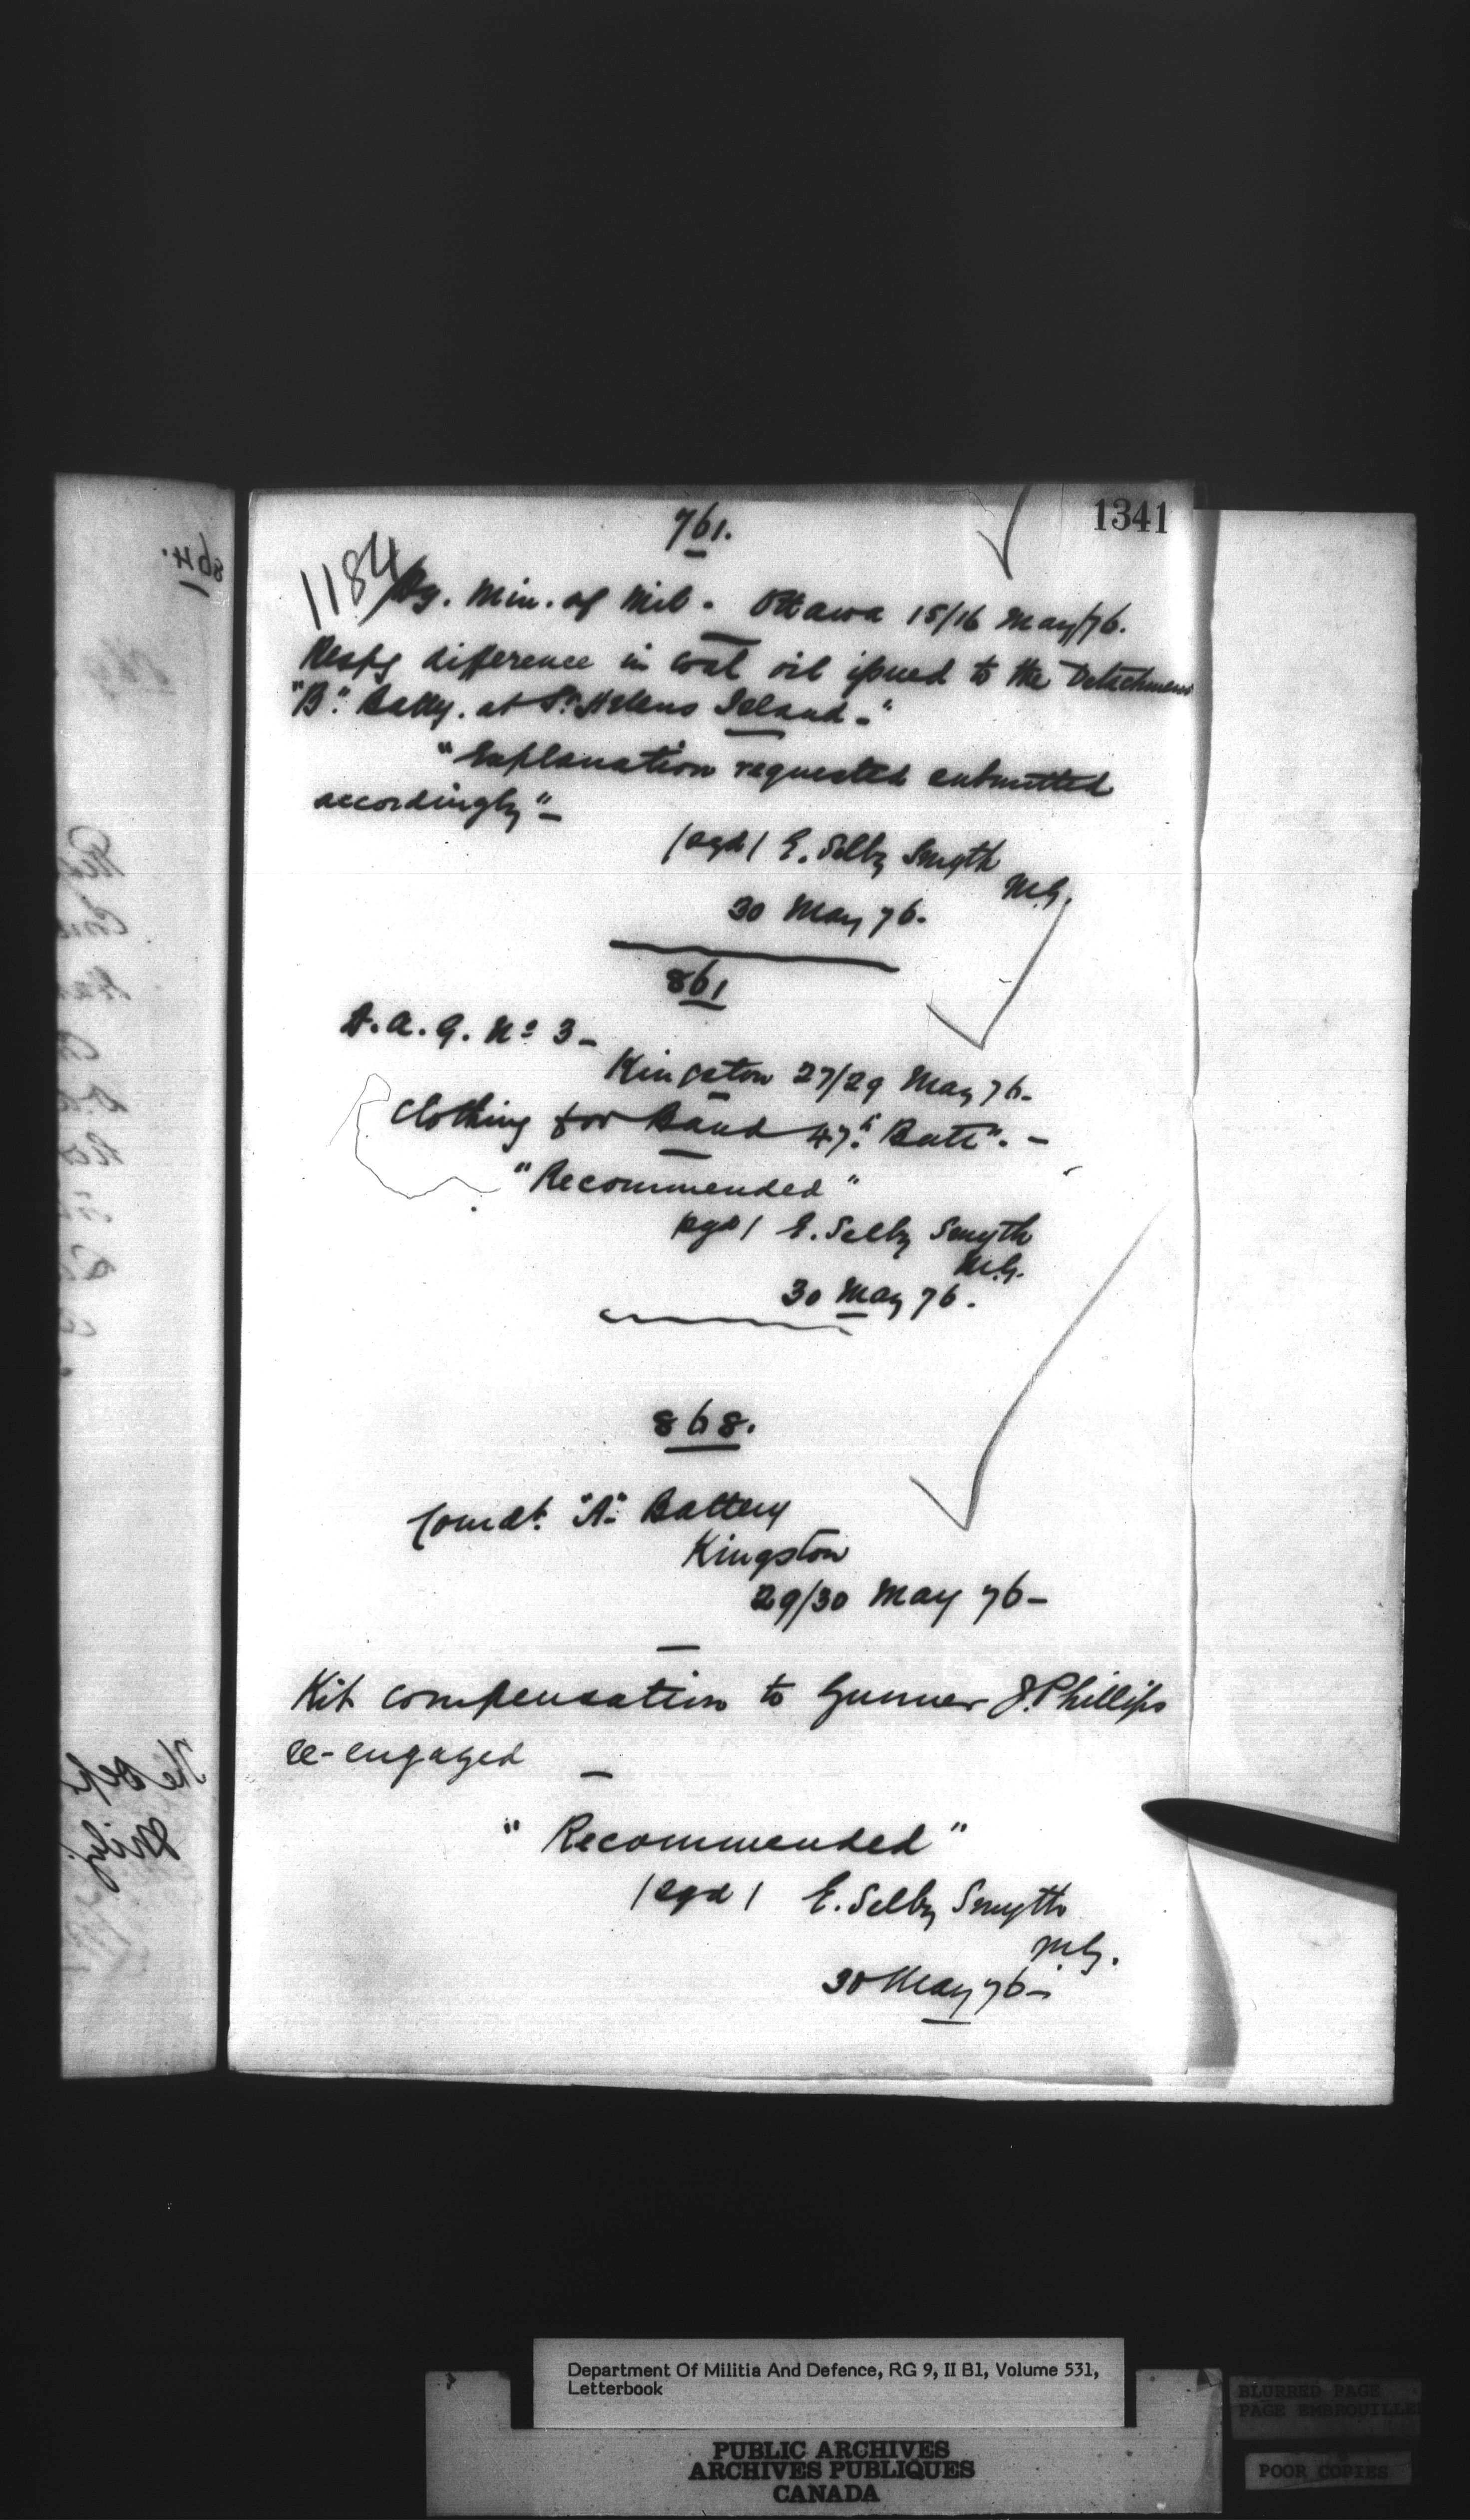 1341
761.
1184
Dy. Min. of Mil. Ottawa 15/16 May/76.
Respg difference in coal oil issued to the Detachment
"B". Batty. at St. Helens Island-"
"Explanation requested submitted
accordingly"-
/sgd/ E. Selby Smyth
M.G.
30 May 76.
861
D.A.G. No 3-
Kingston 27/29 May 76-
Clothing for Band 47th Battn. -
"Recommended"
/sgd/ E. Selby Smyth
M.G.
30 May 76.
868.
Comdt. "A" Battery
Kingston
29/30 May 76-
Kit compensation to Gunner J. Phillips
re-engaged
"Recommended"
/sgd/ E. Selby Smyth
M.G.
30 May 76-
864.
Department Of Militia And Defence, RG 9, II B1, Volume 531,
Letterbook
PUBLIC ARCHIVES
ARCHIVES PUBLIQUES
CANADA
BLURRED PAGE
PAGE EMBROUILLEE
POOR COPIES